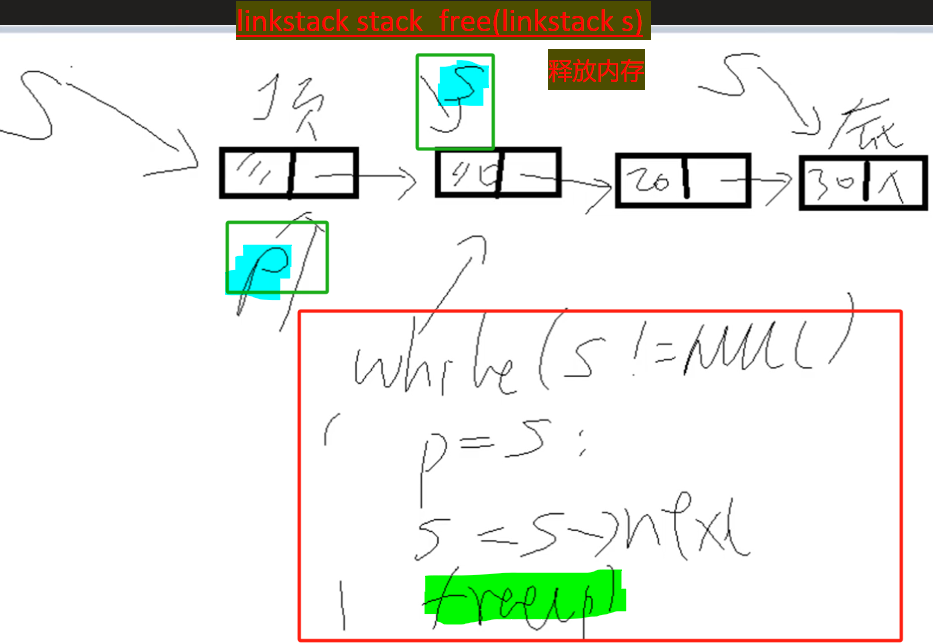 linkstack stack_free(linkstack s)
释放内存
S
顶
S
S
底
40
20
30 ∧
p
while(s!=NULL)
p=s;
s=s->next
free(p)